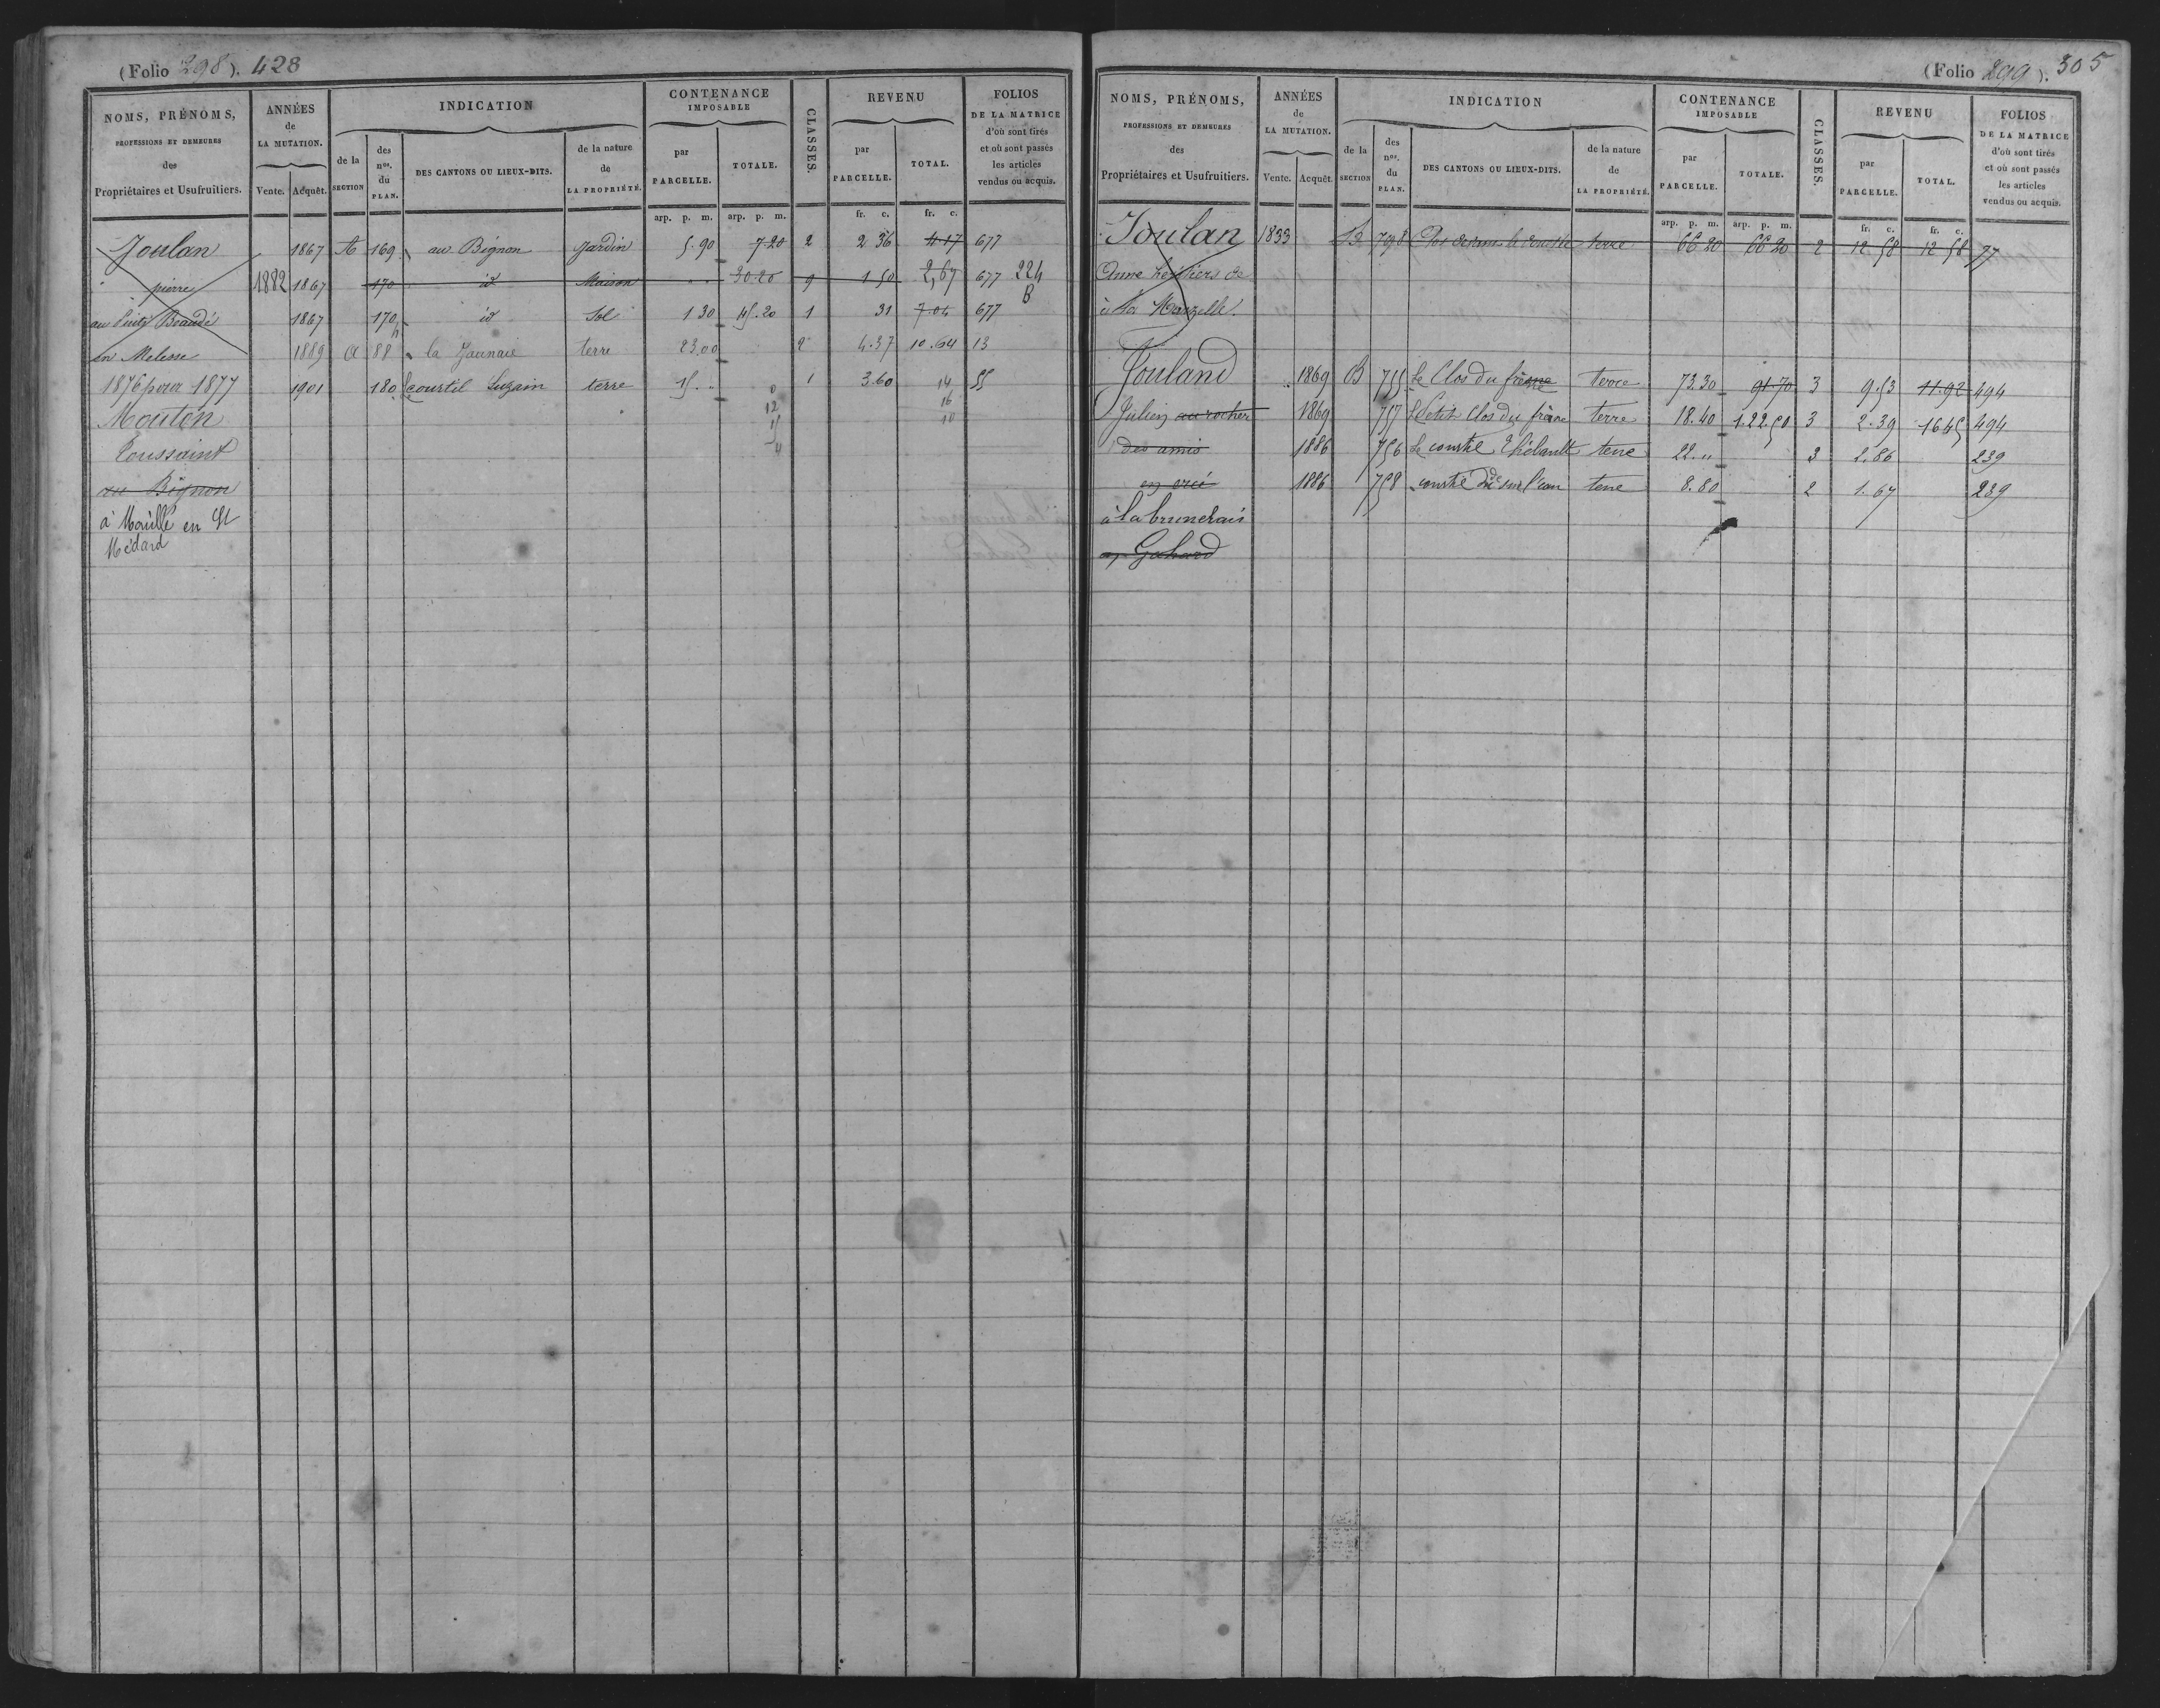 (Folio 298). 428
NOMS, PRÉNOMS,
PROFESSIONS ET DEMEURES
des
Propriétaires et Usufruitiers.
ANNÉES
de
LA MUTATION.
Vente. Acquêt.
INDICATION
de la
SECTION
des
nos.
du
PLAN.
DES CANTONS OU LIEUX-DITS.
de la nature
de
LA PROPRIÉTÉ.
CONTENANCE
IMPOSABLE
par
PARCELLE.
TOTALE.
CLASSES.
REVENU
par
PARCELLE.
TOTAL.
FOLIOS
DE LA MATRICE
d'où sont tirés
et où sont passés
les articles
vendus ou acquis.
arp. p. m. arp. p. m. fr. c. fr. c.
Joulan 1867 A 169 au Bignon Jardin 5.90 7.20 2 2 36 4.17 677
pierre 1882 1867 170 id Maison " " 30.20 9 1 50 2,67 677 224
B
au Puitz Beaudé 1867 170 id Sol 1 30 45.20 1 31 7.04 677
en Melesse 1889 a 88 la Jaunaie terre 23,00 2 4.37 10.64 13
1876 pour 1877 1901 180 Le courtil Suzain terre 15.. 1 3.60 14 55
0
Mouton 12 16
15 10
Toussaint 4
au Bignon
à Maillé en St
Médard
(Folio 299). 305
NOMS, PRÉNOMS,
PROFESSIONS ET DEMEURES
des
Propriétaires et Usufruitiers.
ANNÉES
de
LA MUTATION.
Vente. Acquêt.
INDICATION
de la
SECTION
des
nos.
du
PLAN.
DES CANTONS OU LIEUX-DITS.
de la nature
de
LA PROPRIÉTÉ.
CONTENANCE
IMPOSABLE
par
PARCELLE.
TOTALE.
CLASSES.
REVENU
par
PARCELLE.
TOTAL.
FOLIOS
DE LA MATRICE
d'où sont tirés
et où sont passés
les articles
vendus ou acquis.
arp. p. m. arp. p. m. fr. c. fr. c.
Joulan 1833 B 798 Clos terre 66 20 66 20 2 12 58 12 58 77
Anne héritiers de
à la
Jouland 1869 B 755 Le Clos du frêne terre 73.30 91.70 3 9.53 11.92 494
Julien au rocher 1869 757 Petit Clos du frêne terre 18.40 1.22.50 3 2.39 16.45 494
des amis 1886 756 Le courtil Thébault terre 22.,, 3 2.86 239
1886 758 courtil dit sur l'eau terre 8.80 2 1.67 239
à la brunelais
Gahard